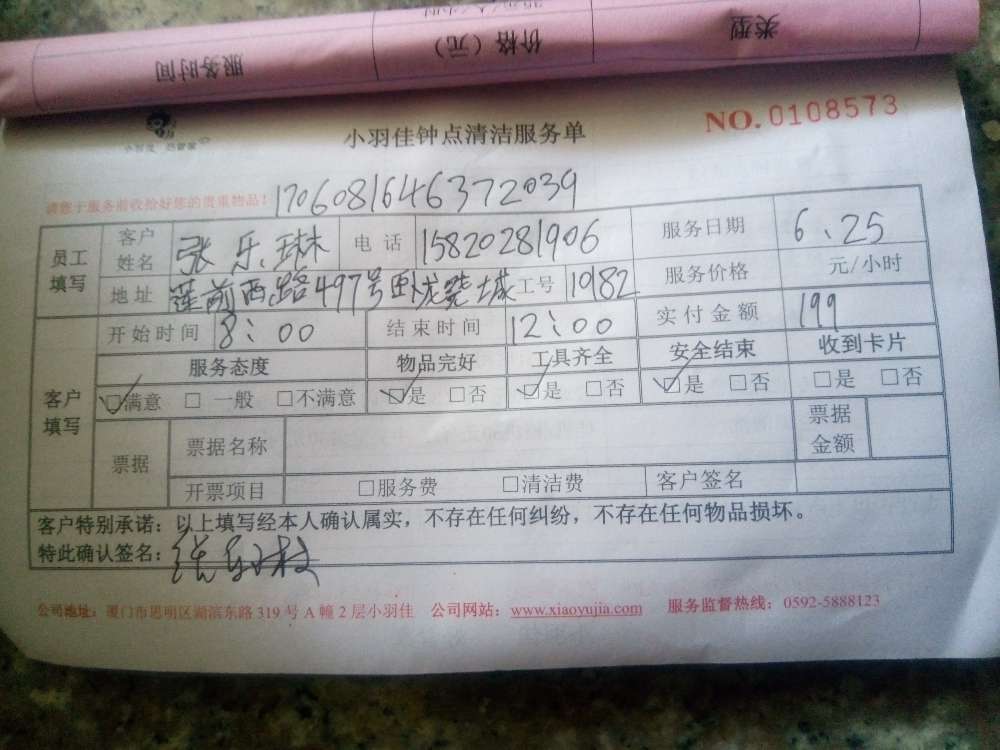 服务时间 价格（元） 类型
小羽佳钟点清洁服务单 NO.0108573
请您于服务前收拾好您的贵重物品！ 1706081646372039
员工填写 客户姓名 张乐琳 电话 15820281906 服务日期 6.25
地址 莲前西路497号卧龙晓城 工号 10982 服务价格 元/小时
开始时间 8：00 结束时间 12：00 实付金额 199
服务态度 物品完好 工具齐全 安全结束 收到卡片
客户填写 ☑满意 □一般 □不满意 ☑是 □否 ☑是 □否 ☑是 □否 □是 □否
票据 票据名称 票据金额
开票项目 □服务费 □清洁费 客户签名
客户特别承诺：以上填写经本人确认属实，不存在任何纠纷，不存在任何物品损坏。
特此确认签名：
公司地址：厦门市思明区湖滨东路319号A幢2层小羽佳 公司网站：www.xiaoyujia.com 服务监督热线：0592-5888123